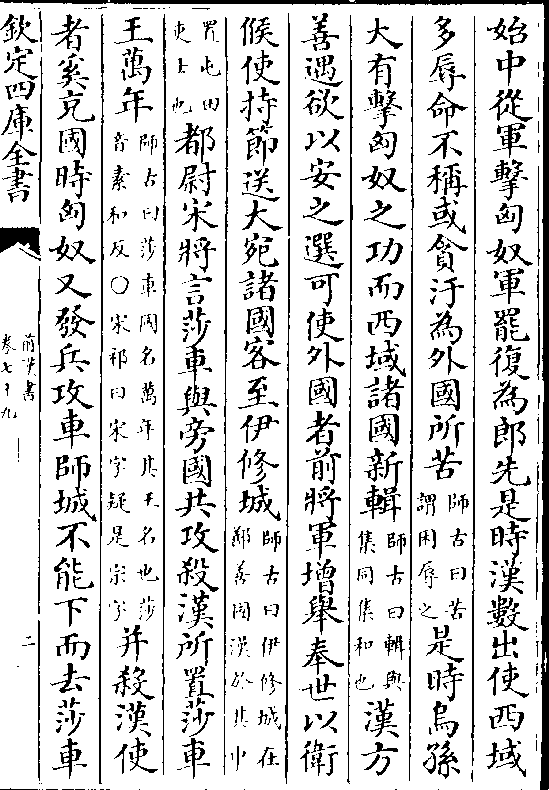 始中從軍擊匈奴軍罷復為郎先是時漢數出使西域
多辱命不稱或貪汙為外國所苦師古曰苦謂困辱之是時烏孫
大有擊匈奴之功而西域諸國新輯師古曰輯與集同集和也漢方
善遇欲以安之選可使外國者前將軍增舉奉世以衛
候使持節送大宛諸國客至伊修城師古曰伊修城在鄯善國漢於其中
置屯田吏士也都尉宋將言莎車與旁國共攻殺漢所置莎車
王萬年師古曰莎車國名萬年其王名也莎音素和反○宋祁曰宋字疑是宗字并殺漢使
者奚充國時匈奴又發兵攻車師城不能下而去莎車
欽定四庫全書
前漢書
卷七十九
二